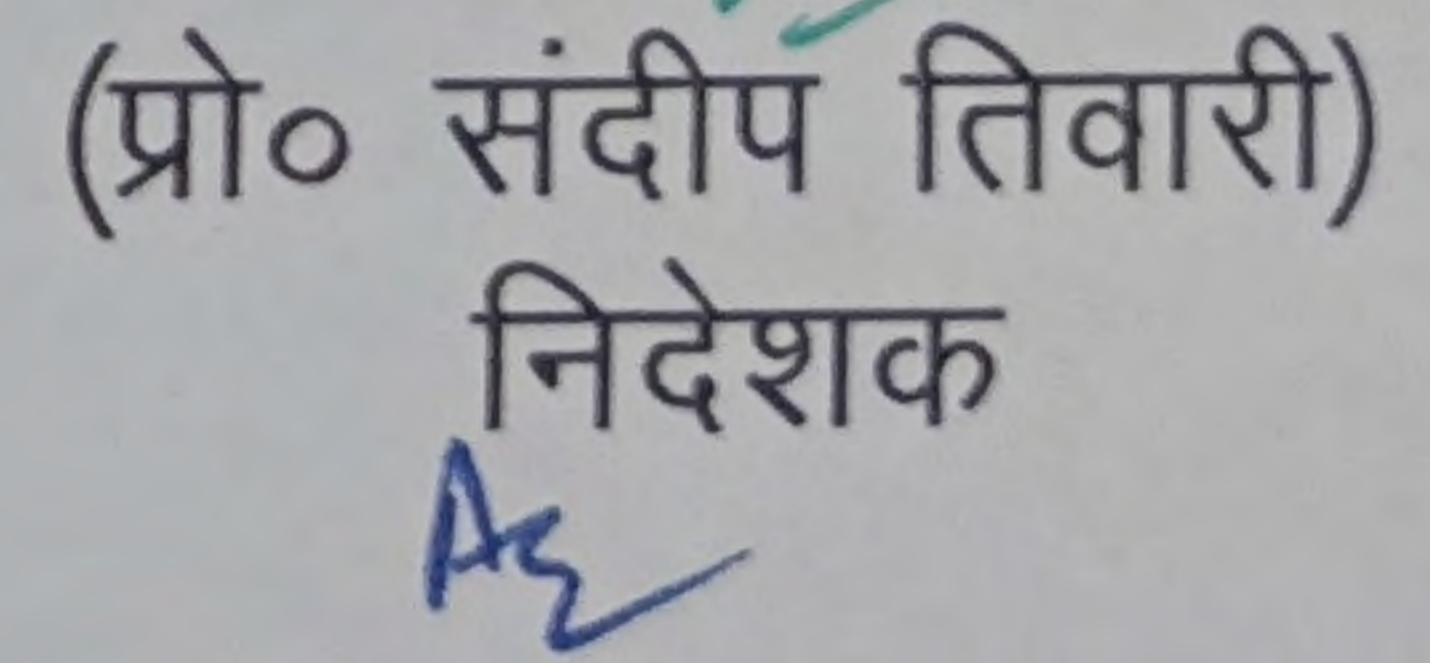 (प्रो० संदीप तिवारी)
निदेशक